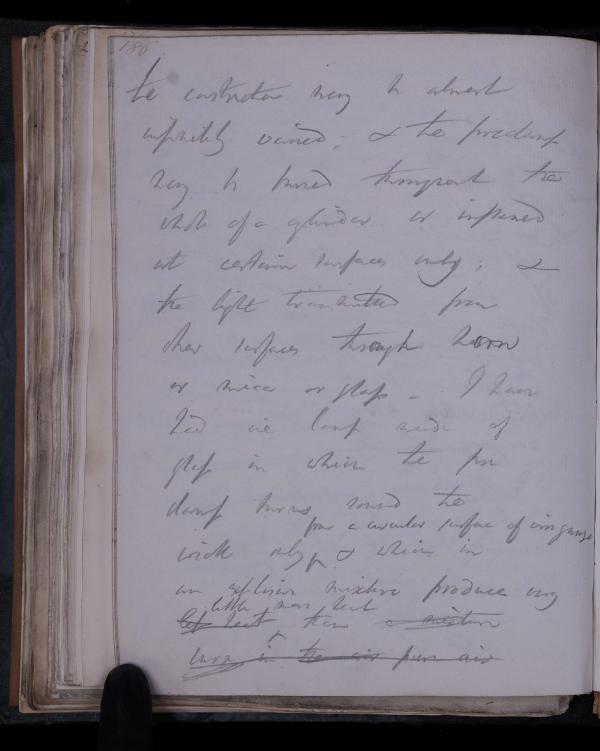 180
the construction may be almost
infinitely varied; & the firedamp
may be burned throughout the
whole of a cylinder or inflamed
at certain surfaces only; &
the light transmitted from
other surfaces through horn
or mica or glass - I have
had one lamp made of
glass in which the fire
damp burns round the
from a circular surface of wire gauze
wick only & which in
an explosive mixture produces very
little more heat
less heat than a mixture
in the air pure air